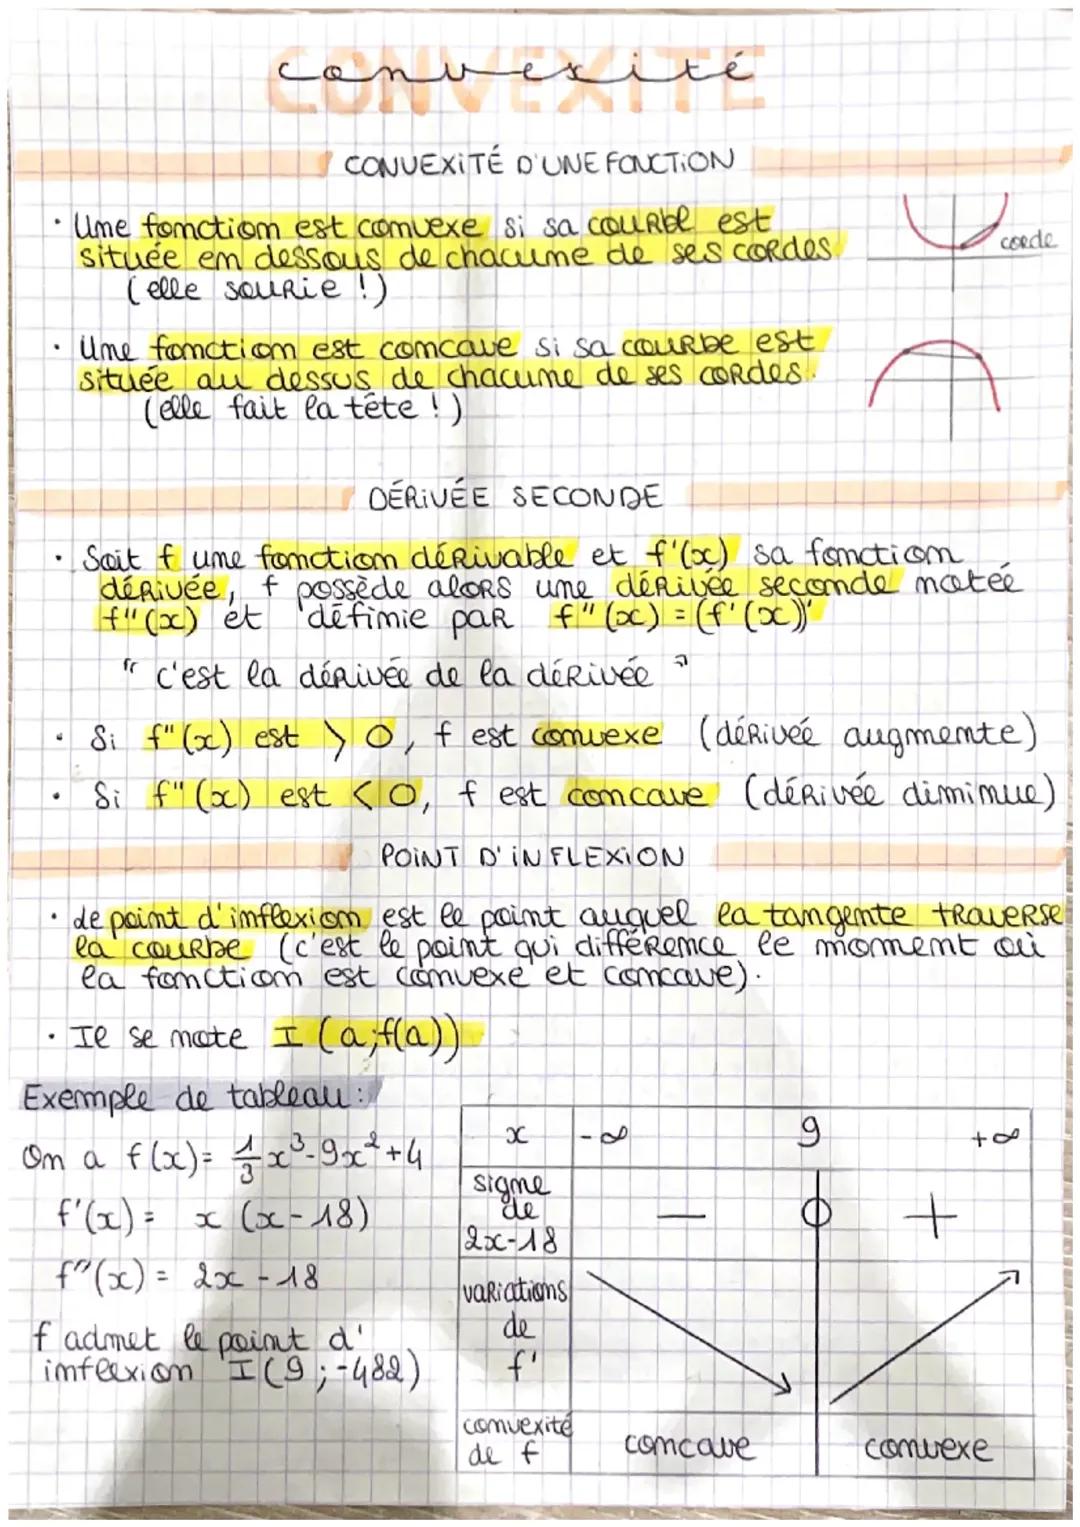 CONVEXITÉ
convexité
CONVEXITÉ D'UNE FONCTION
• Une fonction est convexe si sa courbe est
située en dessous de chacune de ses cordes
(elle sourie !)
corde
• Une fonction est concave si sa courbe est
située au dessus de chacune de ses cordes.
(elle fait la tête !)
DÉRIVÉE SECONDE
• Soit f une fonction dérivable et f'(x) sa fonction
dérivée, f possède alors une dérivée seconde notée
f"(x) et définie par f"(x) = (f'(x))'
" c'est la dérivée de la dérivée "
• Si f"(x) est > 0, f est convexe (dérivée augmente)
• Si f"(x) est < 0, f est concave (dérivée diminue)
POINT D'INFLEXION
• Le point d'inflexion est le point auquel la tangente traverse
la courbe (c'est le point qui différence le moment où
la fonction est convexe et concave).
• Il se note I (a;f(a))
Exemple de tableau :
On a f(x) = 1/3 x³-9x²+4
f'(x) = x (x-18)
f"(x) = 2x - 18
f admet le point d'
inflexion I(9 ; -482)
x -∞ 9 +∞
signe
de
2x-18
- 0 +
variations
de
f'
convexité
de f
concave convexe